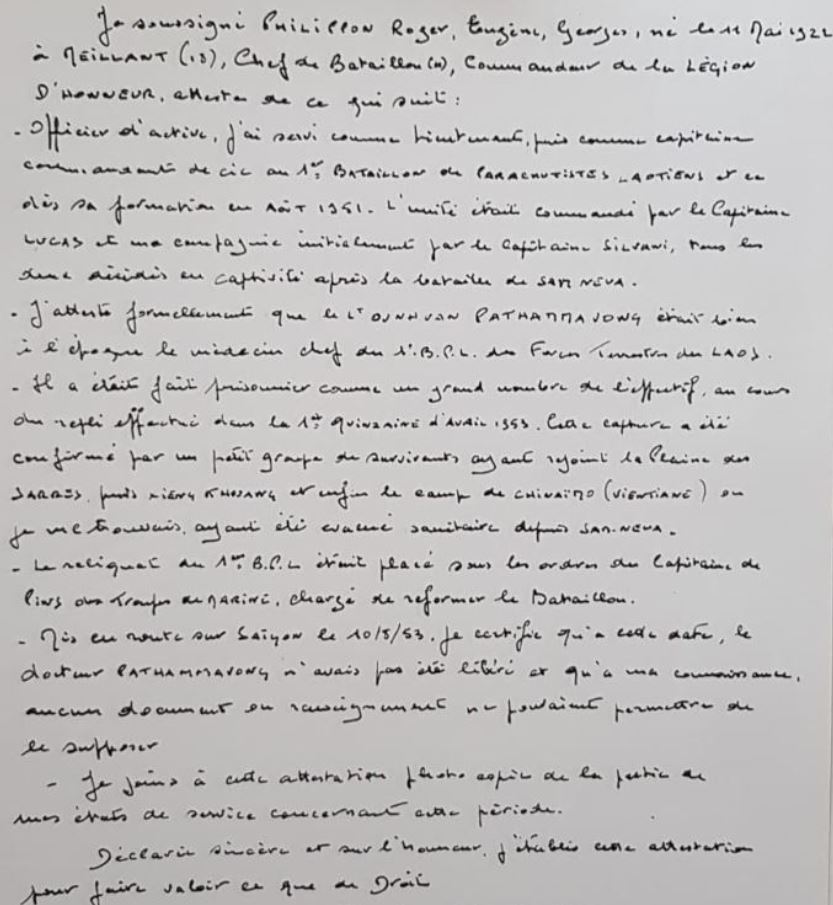 Je soussigné PHILIPPON Roger, Eugène, Georges, né le 11 Mai 1922
à MEILLANT (18), Chef de Bataillon (H), Commandeur de la LÉGION
D'HONNEUR, atteste de ce qui suit :
- Officier d'active, j'ai servi comme lieutenant, puis comme capitaine
commandant de cie au 1er BATAILLON de PARACHUTISTES LAOTIENS et ce
dès sa formation en AOÛT 1951. L'unité était commandé par le Capitaine
LUCAS et ma compagnie initialement par le Capitaine SILVANI, tous les
deux décédés en captivité après la bataille de SAM NEVA.
- J'atteste formellement que le Lt OUNHUAN PATHAMMAVONG était bien
à l'époque le médecin chef du 1er B.P.L. des Forces Terrestres du LAOS.
- Il a était fait prisonnier comme un grand nombre de l'effectif, au cours
du repli effectué dans la 1ère QUINZAINE d'AVRIL 1953. Cette capture a été
confirmé par un petit groupe de survivants ayant rejoint la Plaine des
JARRES, puis XIENG KHOUANG et enfin le camp de CHINAÏMO (VIENTIANE) ou
je me trouvais, ayant été évacué sanitaire depuis SAM-NEVA.
- Le reliquat du 1er B.P.L était placé sous les ordres du Capitaine de
Pins des Troupes de MARINE, chargé de reformer le Bataillon.
- Mis en route sur Saïgon le 10/5/53, je certifie qu'a cette date, le
docteur PATHAMMAVONG n'avais pas été libéré et qu'a ma connaissance,
aucun document ou renseignement ne pouvaient permettre de
le supposer
- Je joins à cette attestation photo copie de la partie de
mes états de service concernant cette période.
Déclarée sincère et sur l'honneur, j'établis cette attestation
pour faire valoir ce que de Droit